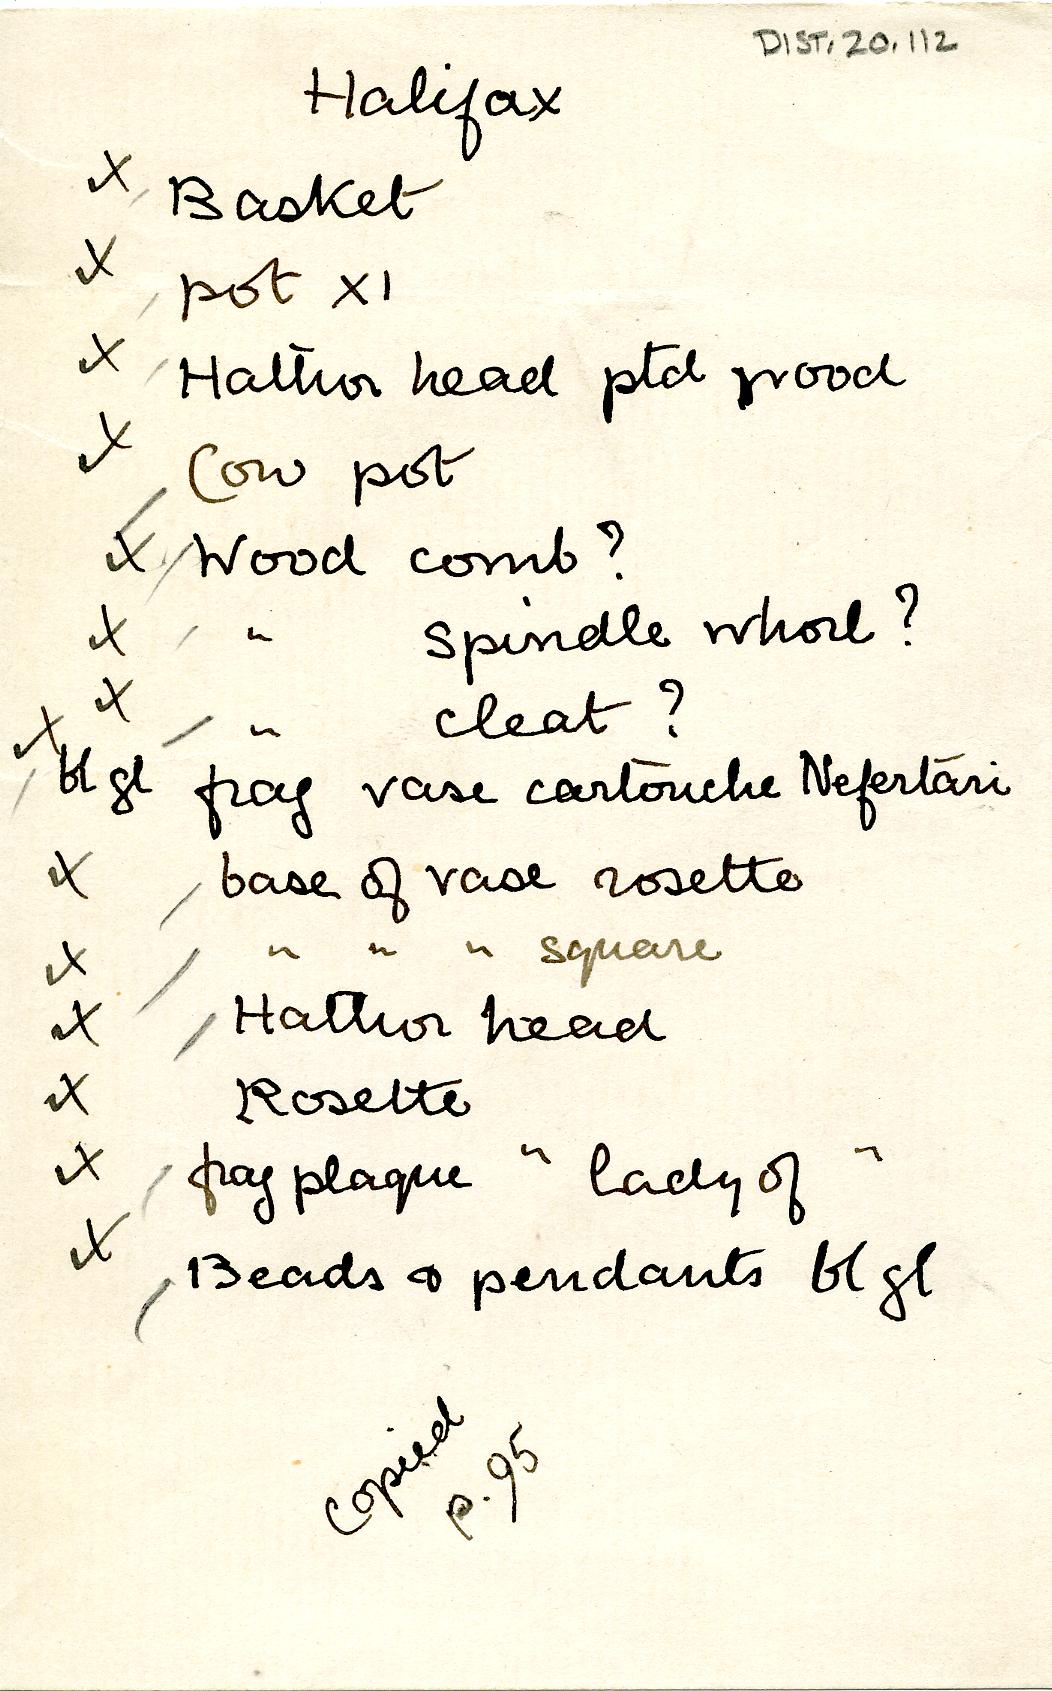 DIST. 20. 112
Halifax
Basket
pot XI
Hathor head ptd wood
Cow pot
Wood comb?
" spindle whorl?
" cleat?
bl gl frag vase cartouche Nefertari
base of vase rosette
" " " square
Hathor head
Rosette
frag plaque " lady of "
Beads & pendants bl gl
Copied
p. 95